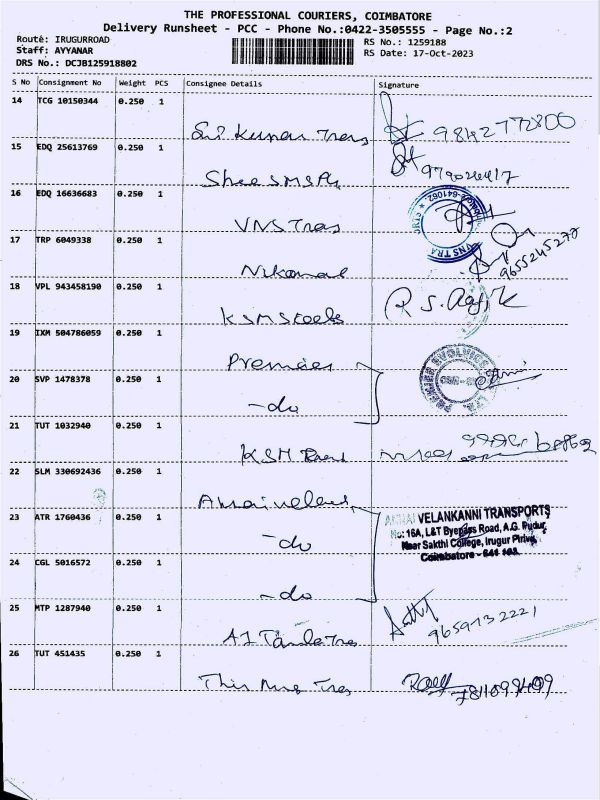 THE PROFESSIONAL COURIERS, COIMBATORE
Delivery Runsheet - PCC - Phone No.:0422-3505555 - Page No.:2
Route: IRUGURROAD
RS No.: 1259188
Staff: AYYANAR
RS Date: 17-Oct-2023
DRS No.: DCJB125918802
S No Consignment No Weight PCS Consignee Details Signature
14 TCG 10150344 0.250 1
Sri Kumar Trans 9842772800
15 EDQ 25613769 0.250 1
Shree SMS
16 EDQ 16636683 0.250 1
VNS Trans
VNS TRA
17 TRP 6049338 0.250 1
9655245270
18 VPL 943458190 0.250 1
KSM Steels
19 IXM 504786059 0.250 1
Premier
20 SVP 1478378 0.250 1
PREMIER EVOLVICS
-do
21 TUT 1032940 0.250 1
KSM
22 SLM 330692436 0.250 1
23 ATR 1760436 0.250 1
ANNAI VELANKANNI TRANSPORTS
No: 16A, L&T Byepass Road, A.G. Pudur,
Near Sakthi College, Irugur Pirivu,
Coimbatore - 641 103.
-do
24 CGL 5016572 0.250 1
-do
25 MTP 1287940 0.250 1
9659132221
26 TUT 451435 0.250 1